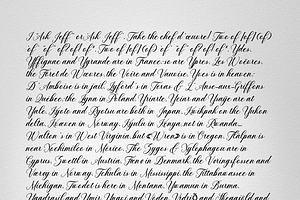 "I Ask Jeff" or 'Ask Jeff'. Take the chef d'œuvre! Two of [of] (of)
'of' "of" of? of! of*. Two of [of] (of) of "of" of? of! of*. Ydes,
Yffignac and Ygrande are in France: so are Ypres, Les Woëvres,
the Forêt de Wœvres, the Voire and Vauvise. Yves is in heaven;
D'Amboise is in jail. Lyford's in Texas & L'Anse-aux-Griffons
in Québec; the Łyna in Poland. Yriarte, Yciar and Ysaÿe are at
Yale. Kyoto and Ryotsu are both in Japan, Kwikpak on the Yukon
delta, Kvæven in Norway, Kyulu in Kenya, not in Rwanda.…
Walton's in West Virginia, but «Wren» is in Oregon. Tlálpan is
near Xochimilco in México. The Zygos & Xylophagou are in
Cyprus, Zwettl in Austria, Fænø in Denmark, the Vøringsfossen and
Værøy in Norway. Tchula is in Mississippi, the Tittabawassee in
Michigan. Twodot is here in Montana, Ywamun in Burma.
Yggdrasil and Ymir, Yngvi and Voden, Vídrið and Skeggjöld and